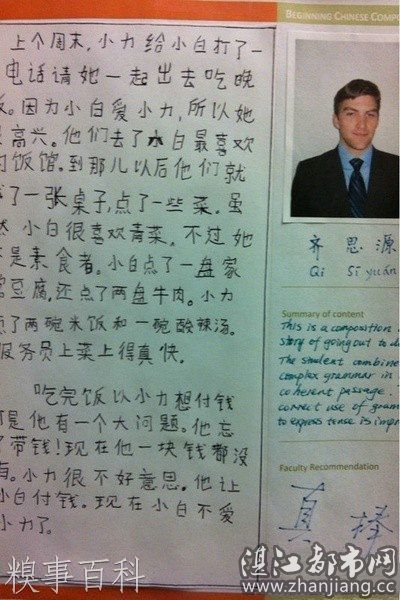 BEGINNING CHINESE COMPO
上个周末,小力给小白打了一
电话请她一起出去吃晚
饭。因为小白爱小力,所以她
很高兴。他们去了小白最喜欢
的饭馆。到那儿以后他们就
了一张桌子,点了一些菜。虽
然小白很喜欢青菜,不过她
不是素食者。小白点了一盘家
常豆腐,还点了两盘牛肉。小力
点了两碗米饭和一碗酸辣汤。
服务员上菜上得真快。
吃完饭以小力想付钱
可是他有一个大问题。他忘
了带钱!现在他一块钱都没
有。小力很不好意思。他让
小白付钱。现在小白不爱
小力了。
齐思源
Qi Sīyuán
Summary of content
This is a composition
story of going out to di
The student combine
complex grammar in
coherent passage.
correct use of gram
to express tense is impr
Faculty Recommendation
真棒
糗事百科
湛江都市网
www.zhanjiang.cc